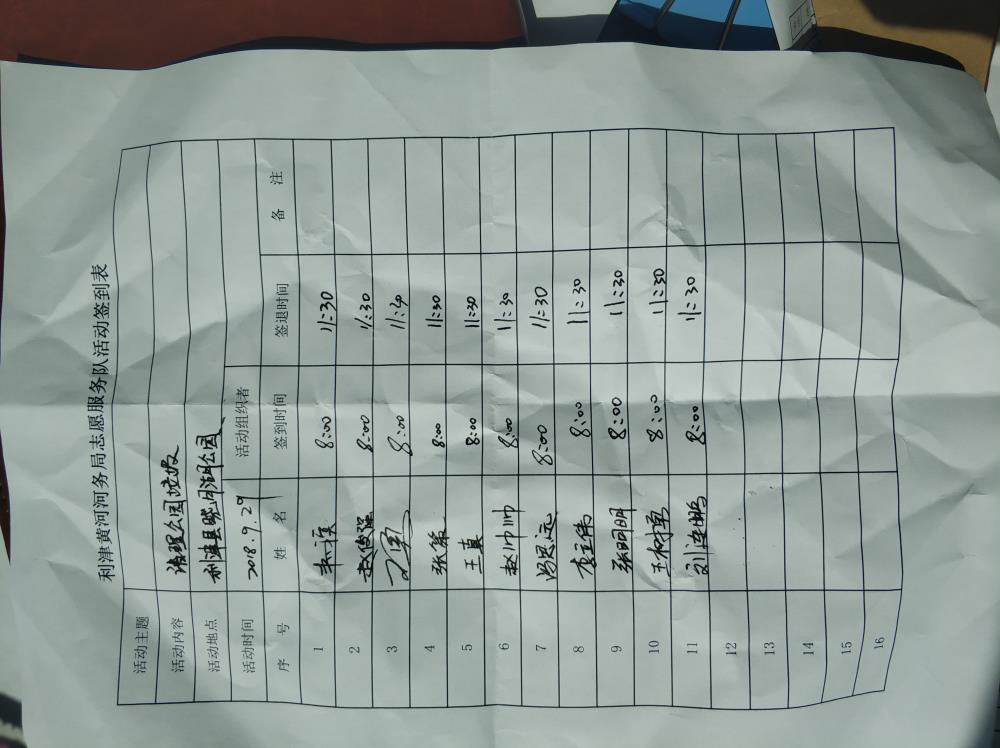 利津黄河河务局志愿服务队活动签到表
活动主题
活动内容 清理公园垃圾
活动地点 利津县 月湖公园
活动时间 2018.9.29 活动组织者
序 号 姓 名 签到时间 签退时间 备 注
1 8:00 11:30
2 赵俊强 8:00 11:30
3 8:00 11:30
4 8:00 11:30
5 王真 8:00 11:30
6 赵帅帅 8:00 11:30
7 冯 远 8:00 11:30
8 李立伟 8:00 11:30
9 张明明 8:00 11:30
10 王树勇 8:00 11:30
11 刘连鹏 8:00 11:30
12
13
14
15
16